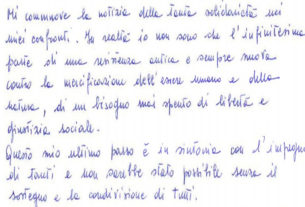 Mi commuove la notizia della tanta solidarietà nei
miei confronti. In realtà io non sono che l'infinitesima
parte di una resistenza antica e sempre nuova
contro la mercificazione dell'essere umano e della
natura, di un bisogno mai spento di libertà e
giustizia sociale.
Questo mio ultimo passo è in sintonia con l'impegno
di tanti e non sarebbe stato possibile senza il
sostegno e la condivisione di tutti.